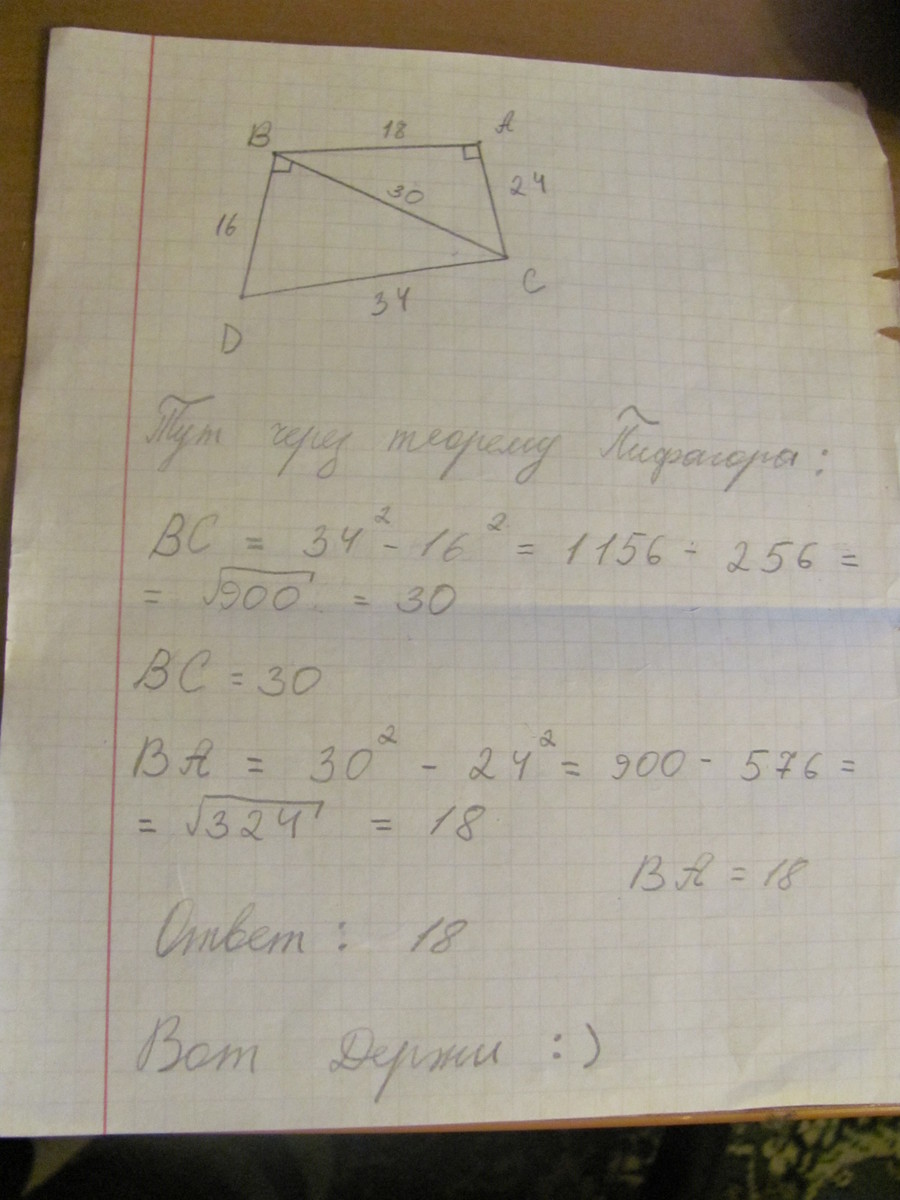 B 18 A
16 30 24
34 C
D
Тут через теорему Пифагора:
BC = 34² - 16² = 1156 - 256 =
= √900 = 30
BC = 30
BA = 30² - 24² = 900 - 576 =
= √324 = 18
BA = 18
Ответ: 18
Вот Держи :)